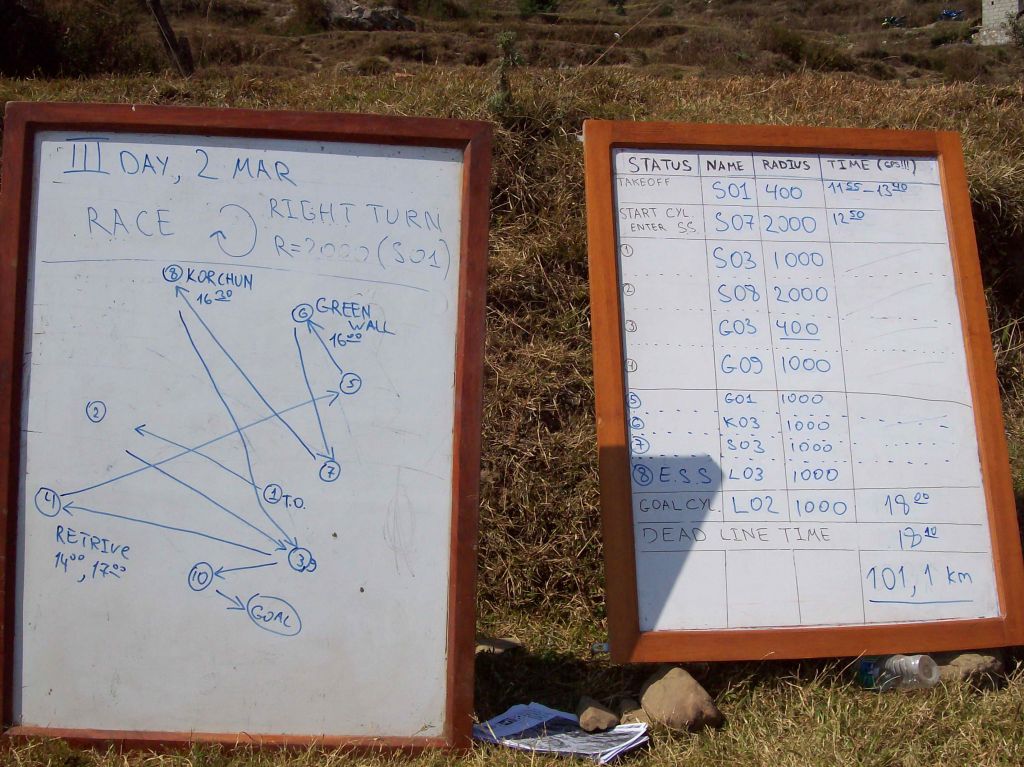 III DAY, 2 MAR
RACE
RIGHT TURN
R=2000 (S01)
8 KORCHUN
16 30
6 GREEN
WALL
16 00
5
2
7
4
1 T.O.
RETRIVE
14 00, 17 00
3,9
10
GOAL
STATUS NAME RADIUS TIME (GPS!!!)
TAKEOFF S01 400 11 55 - 13 40
START CYL. ENTER SS S07 2000 12 50
1 S03 1000
2 S08 2000
3 G03 400
4 G09 1000
5 G01 1000
6 K03 1000
7 S03 1000
8 E.S.S L03 1000
GOAL CYL. L02 1000 18 00
DEAD LINE TIME 18 10
101,1 km